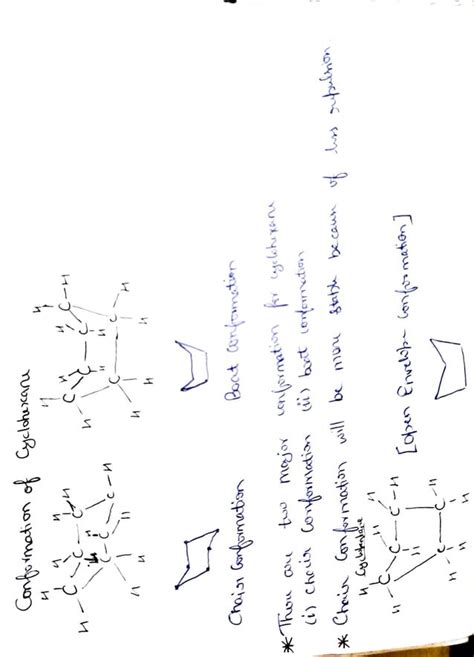 Conformation of Cyclohexane
Chair Conformation
Boat Conformation
* There are two major conformation for cyclohexane
(i) chair conformation (ii) boat conformation
* Chair Conformation will be more stable because of less repulsion.
[open Envelope conformation]